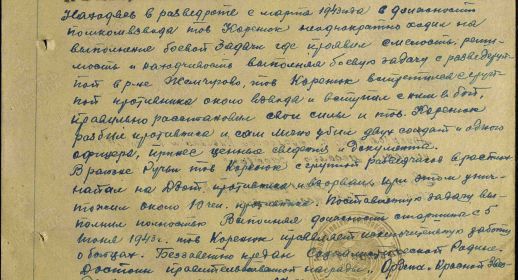 Находясь в разведроте с марта 1943 года в должности
помкомвзвода тов Коренюк неоднократно ходил на
выполнение боевой задачи где проявил смелость, реши-
мость и находчивость выполняя боевую задачу с разведгруп-
пой в р-не тов Коренюк встретился с груп-
пой противника около взвода и вступил с ним в бой,
правильно расстановил свои силы и тов. Коренюк
разбил противника и сам лично убил двух солдат и одного
офицера, принес ценные сведения и документы.
В районе тов Коренюк с группой разведчиков
на Дзот противника и взорвали при этом уни-
тожили около 10 чел. противника. Поставленную задачу вы-
полнил полностью. Выполняя должность старшины с 5
июня 1943 г. тов Коренюк проявляет исключительную заботу
о бойцах. Беззаветно предан Социалистической Родине.
Достоин правительственной награды "Ордена Красной Звез-